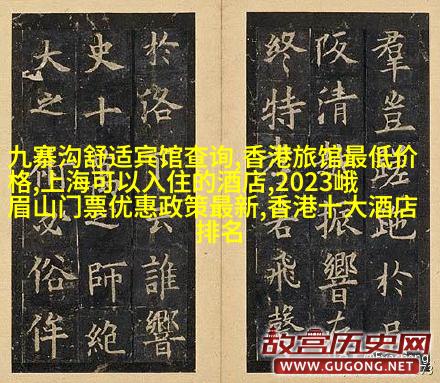 羣豈地於
阪清振響
終特若飛聲
於洛誰響
史十之師絶
大之俗侔
九寨沟舒适宾馆查询,香港旅馆最低价
格,上海可以入住的酒店,2023峨
眉山门票优惠政策最新,香港十大酒店
排名
故宫历史网
WWW.GUGONG.NET
73